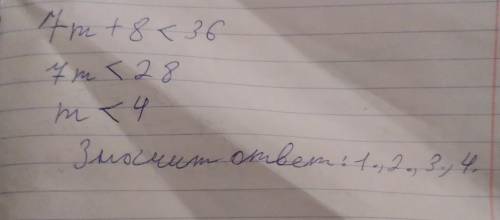 7m + 8 < 36
7m < 28
m < 4
Значит ответ: 1., 2., 3., 4.